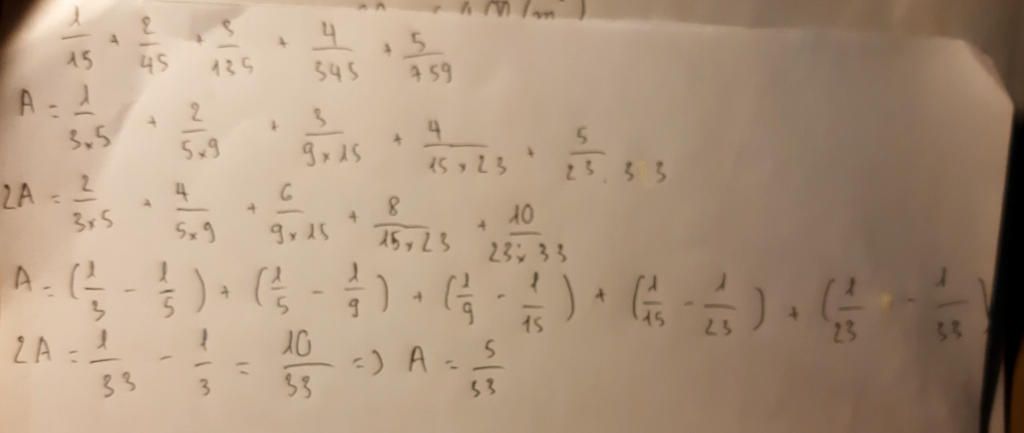 1/15 + 2/45 + 3/135 + 4/345 + 5/759
A = 1/3×5 + 2/5×9 + 3/9×15 + 4/15×23 + 5/23.33
2A = 2/3×5 + 4/5×9 + 6/9×15 + 8/15×23 + 10/23×33
A = (1/3 - 1/5) + (1/5 - 1/9) + (1/9 - 1/15) + (1/15 - 1/23) + (1/23 - 1/33)
2A = 1/33 - 1/3 = 10/33 =) A = 5/33